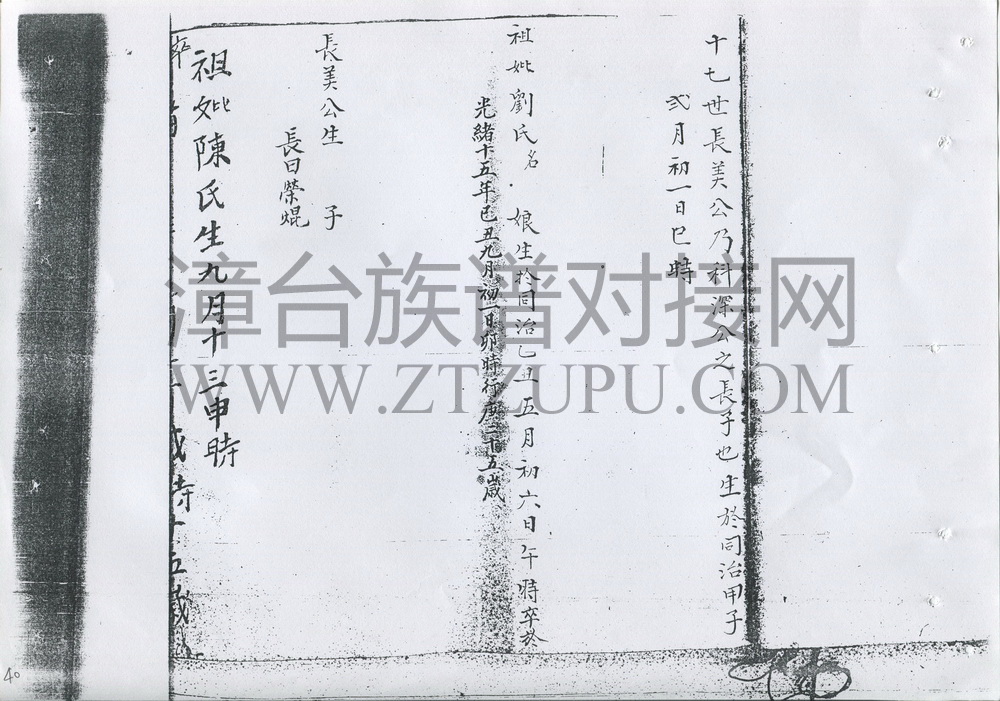 十七世長美公乃科深公之長子也生於同治甲子
弍月初一日巳時
祖妣劉氏名．娘生於同治乙丑五月初六日午時卒於
光緒十五年己丑九月初一日卯時行庚二十五歲
長美公生　子
長曰榮焜
祖妣陳氏生九月十三申時
卒
歲時十五歲
漳台族谱对接网
WWW.ZTZUPU.COM
40